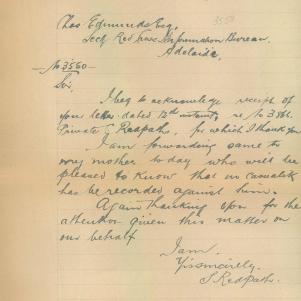 3550
Chas Edmunds Esq.
Secty Red Cross Information Bureau
Adelaide,
No 3550
Sir,
I beg to acknowledge receipt of
your letter dated 12th instant, re No 3861.
Private Redpath, for which I thank you
I am forwarding same to
my mother to day who will be
pleased to know that no casualty
has be recorded against him.
Again Thanking you for the
attention given this matter on
our behalf
I am
Yr sincirely,
S Redpath